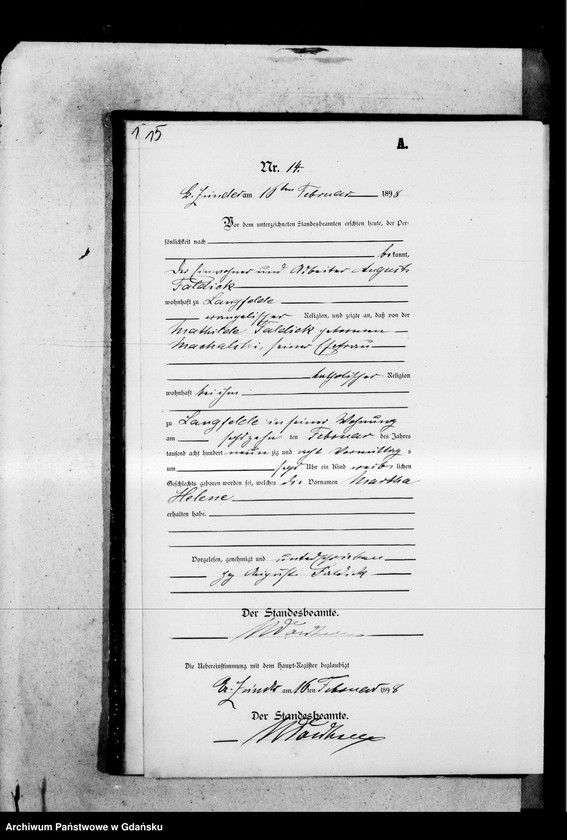 1 15
A.
Nr. 14.
Gr. Zünder am 16ten Februar 1898
Vor dem unterzeichneten Standesbeamten erschien heute, der Per-
sönlichkeit nach
bekannt,
der Einwohner und Arbeiter August
Faldick
wohnhaft zu Langfelde
evangelischer Religion, und zeigte an, daß von der
Mathilde Faldick geborenen
Machalski, seiner Ehefrau
katholischer Religion
wohnhaft bei ihm
zu Langfelde in seiner Wohnung
am sechzehn ten Februar des Jahres
tausend acht hundert neun zig und acht Vormittags
um sechs Uhr ein Kind weib lichen
Geschlechts geboren worden sei, welches die Vornamen Martha
Helene
erhalten habe.
Vorgelesen, genehmigt und unterschrieben
gez August Faldick
Der Standesbeamte.
Die Uebereinstimmung mit dem Haupt-Register beglaubigt
Gr. Zünder am 16ten Februar 1898
Der Standesbeamte.
Archiwum Państwowe w Gdańsku